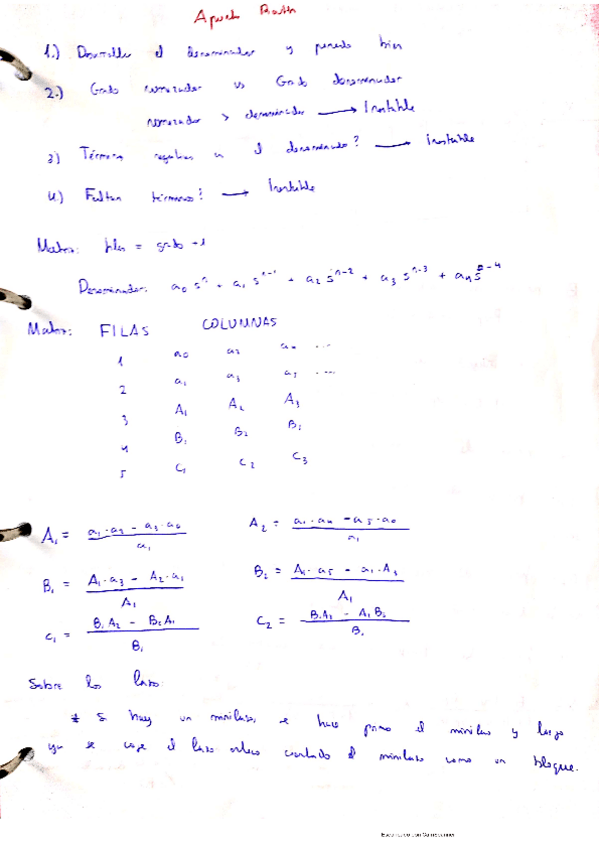 Apuntes Routh
1.) Desarrollar el denominador y ponerlo bien
2.) Grado numerador vs Grado denominador
numerador > denominador → Inestable
3) Término negativo en el denominador? → Inestable
4) Faltan términos? → Inestable
Matriz: filas = grado +1
Denominador: a₀ sⁿ + a₁ sⁿ⁻¹ + a₂ sⁿ⁻² + a₃ sⁿ⁻³ + a₄ sⁿ⁻⁴
Matriz: FILAS COLUMNAS
1 a₀ a₂ a₄ ...
2 a₁ a₃ a₅ ...
3 A₁ A₂ A₃
4 B₁ B₂ B₃
5 C₁ C₂ C₃
A₁ = (a₁·a₂ - a₃·a₀) / a₁ A₂ = (a₁·a₄ - a₅·a₀) / a₁
B₁ = (A₁·a₃ - A₂·a₁) / A₁ B₂ = (A₁·a₅ - a₁·A₃) / A₁
C₁ = (B₁A₂ - B₂A₁) / B₁ C₂ = / B₁
Sobre los lazos:
* Si hay un minilazo, se hace primero el minilazo y luego
ya se coge el lazo entero contando el minilazo como un bloque.
Escaneado con CamScanner